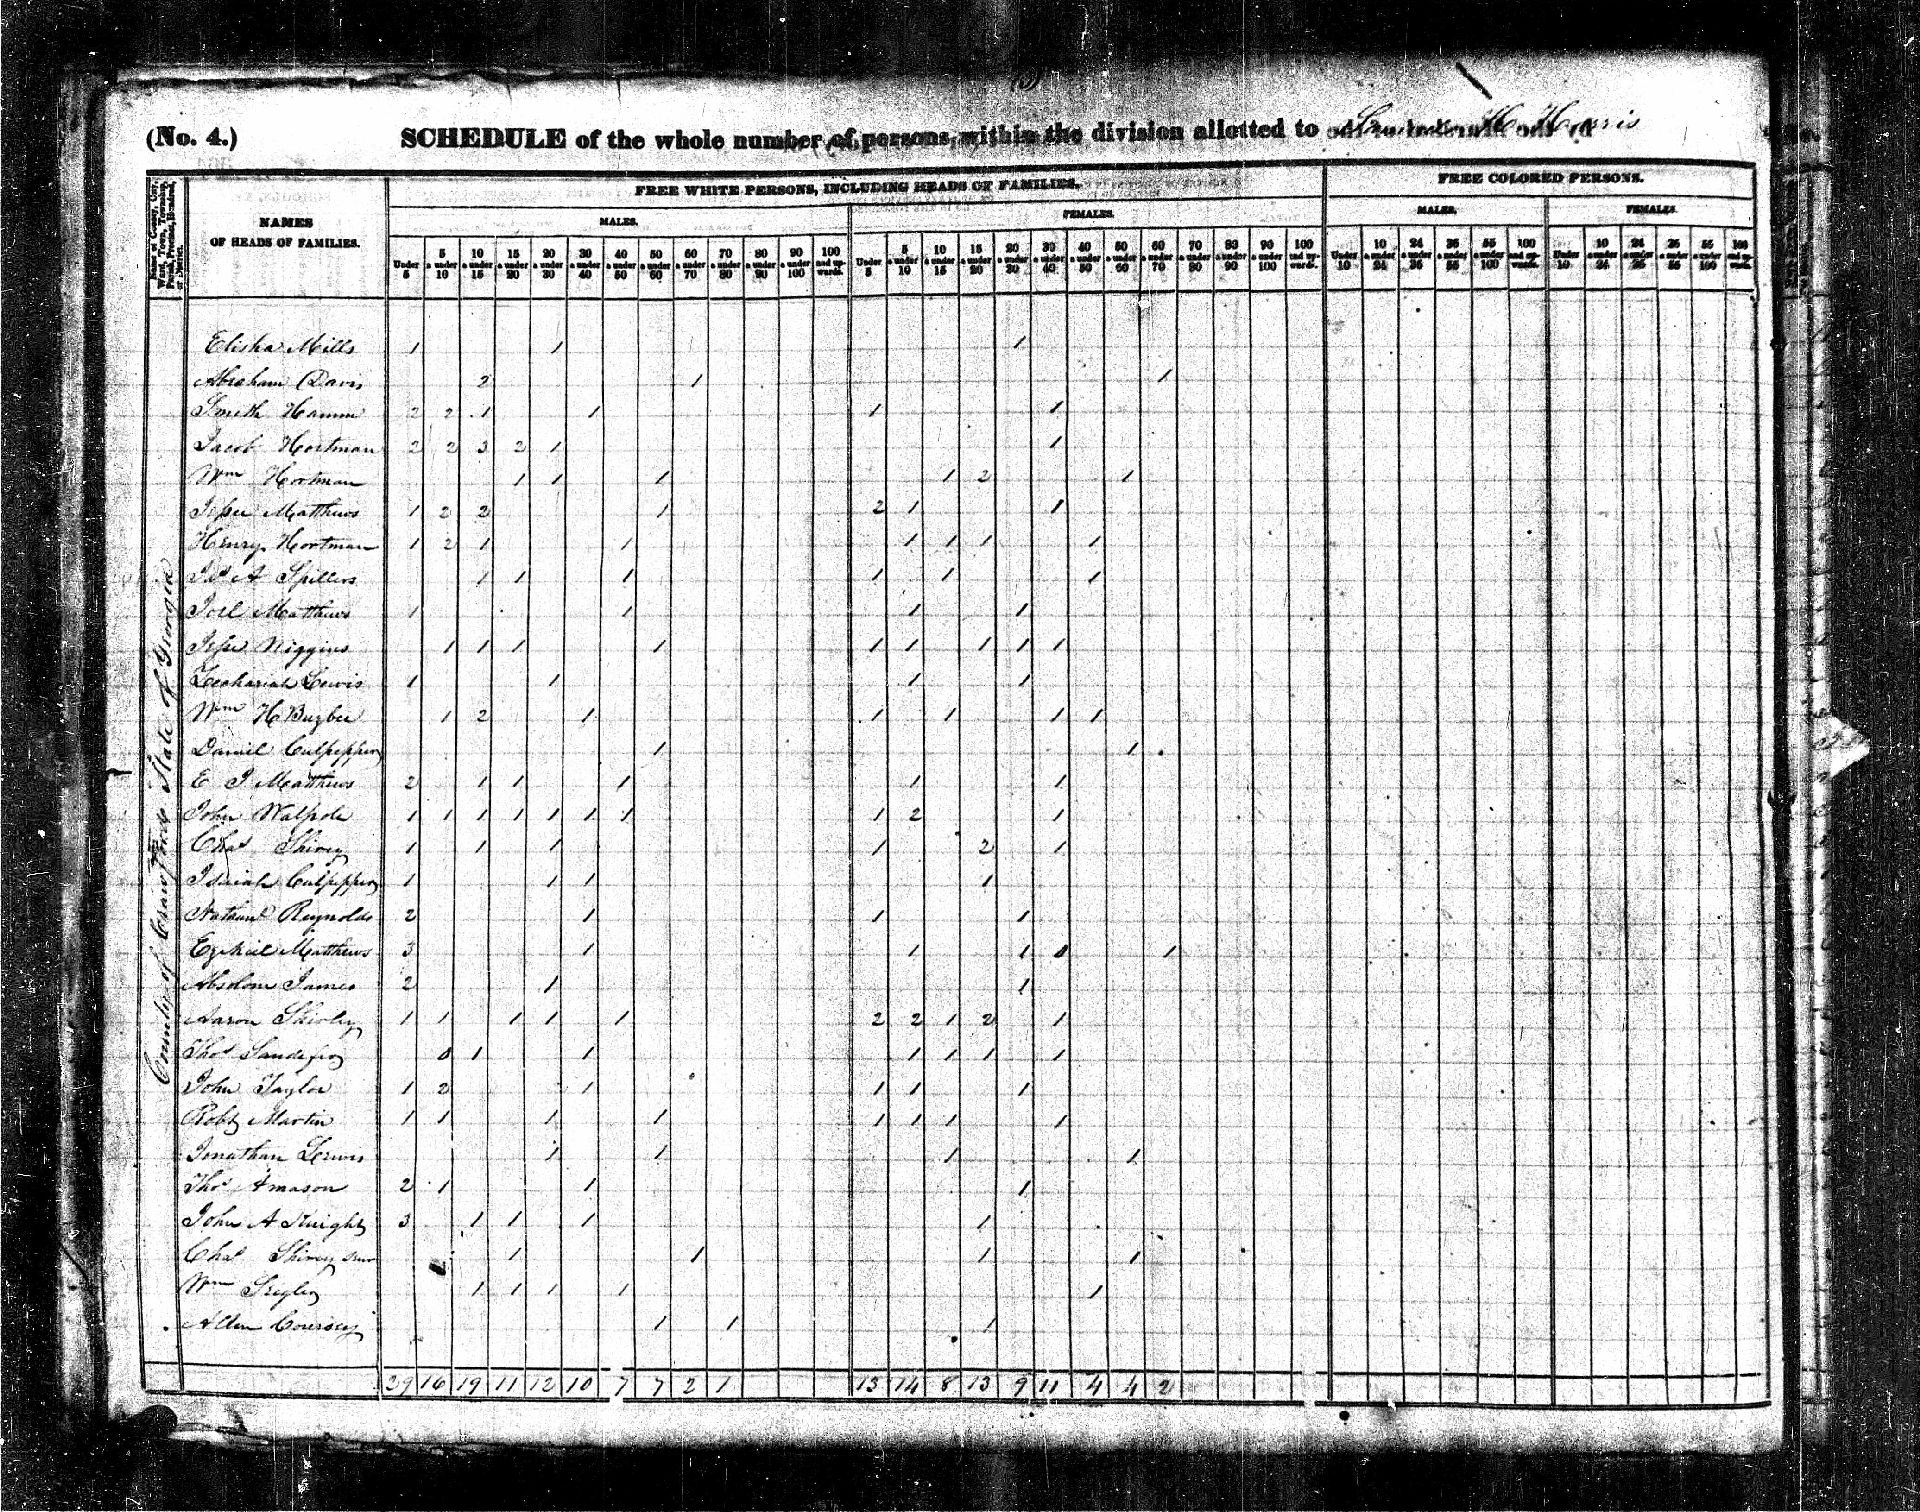 (No. 4.) SCHEDULE of the whole number of persons within the division allotted to H Harris
FREE WHITE PERSONS, INCLUDING HEADS OF FAMILIES. FREE COLORED PERSONS.
NAMES OF HEADS OF FAMILIES. MALES. FEMALES. MALES. FEMALES.
Under 5 5 & under 10 10 & under 15 15 & under 20 20 & under 30 30 & under 40 40 & under 50 50 & under 60 60 & under 70 70 & under 80 80 & under 90 90 & under 100 100 and upwards. Under 5 5 & under 10 10 & under 15 15 & under 20 20 & under 30 30 & under 40 40 & under 50 50 & under 60 60 & under 70 70 & under 80 80 & under 90 90 & under 100 100 and upwards. Under 10 10 & under 24 24 & under 36 36 & under 55 55 & under 100 100 and upwards. Under 10 10 & under 24 24 & under 36 36 & under 55 55 & under 100 100 and upwards.
County of Crawford State of Georgia
Elisha Mills 1 1 1
Abraham Davis 2 1 1
Smith Hamm 2 2 1 1 1 1
Jacob Hortman 2 2 3 2 1 1
Wm Hortman 1 1 1 1 2 1
Jesse Matthews 1 2 2 1 2 1 1
Henry Hortman 1 2 1 1 1 1 1 1
A Spillers 1 1 1 1 1 1
Joel Matthews 1 1 1 1
Jesse Wiggins 1 1 1 1 1 1 1 1 1
Zechariah Lewis 1 1 1 1
Wm H Buzbee 1 2 1 1 1 1 1
Daniel Culpepper 1 1
E J Matthews 2 1 1 1 1 1
John Walpole 1 1 1 1 1 1 1 1 2 1
Chas Shirey 1 1 1 1 2 1
Isaiah Culpepper 1 1 1 1
Nathanl Reynolds 2 1 1 1
Ezekiel Matthews 3 1 1 1 0 1
Absolom James 2 1 1
Aaron Shirley 1 1 1 1 1 2 2 1 2 1
Thos Sandefroy 0 1 1 1 1 1 1
John Taylor 1 2 1 1 1 1
Robt Martin 1 1 1 1 1 1 1 1
Jonathan Lewis 1 1 1 1
Thos Amason 2 1 1 1
John A Knight 3 1 1 1 1
Chas Shirey Senr 1 1 1 1
Wm 1 1 1 1 1
Allen Coursey 1 1 1
29 16 19 11 12 10 7 7 2 1 13 14 8 13 9 11 4 4 2